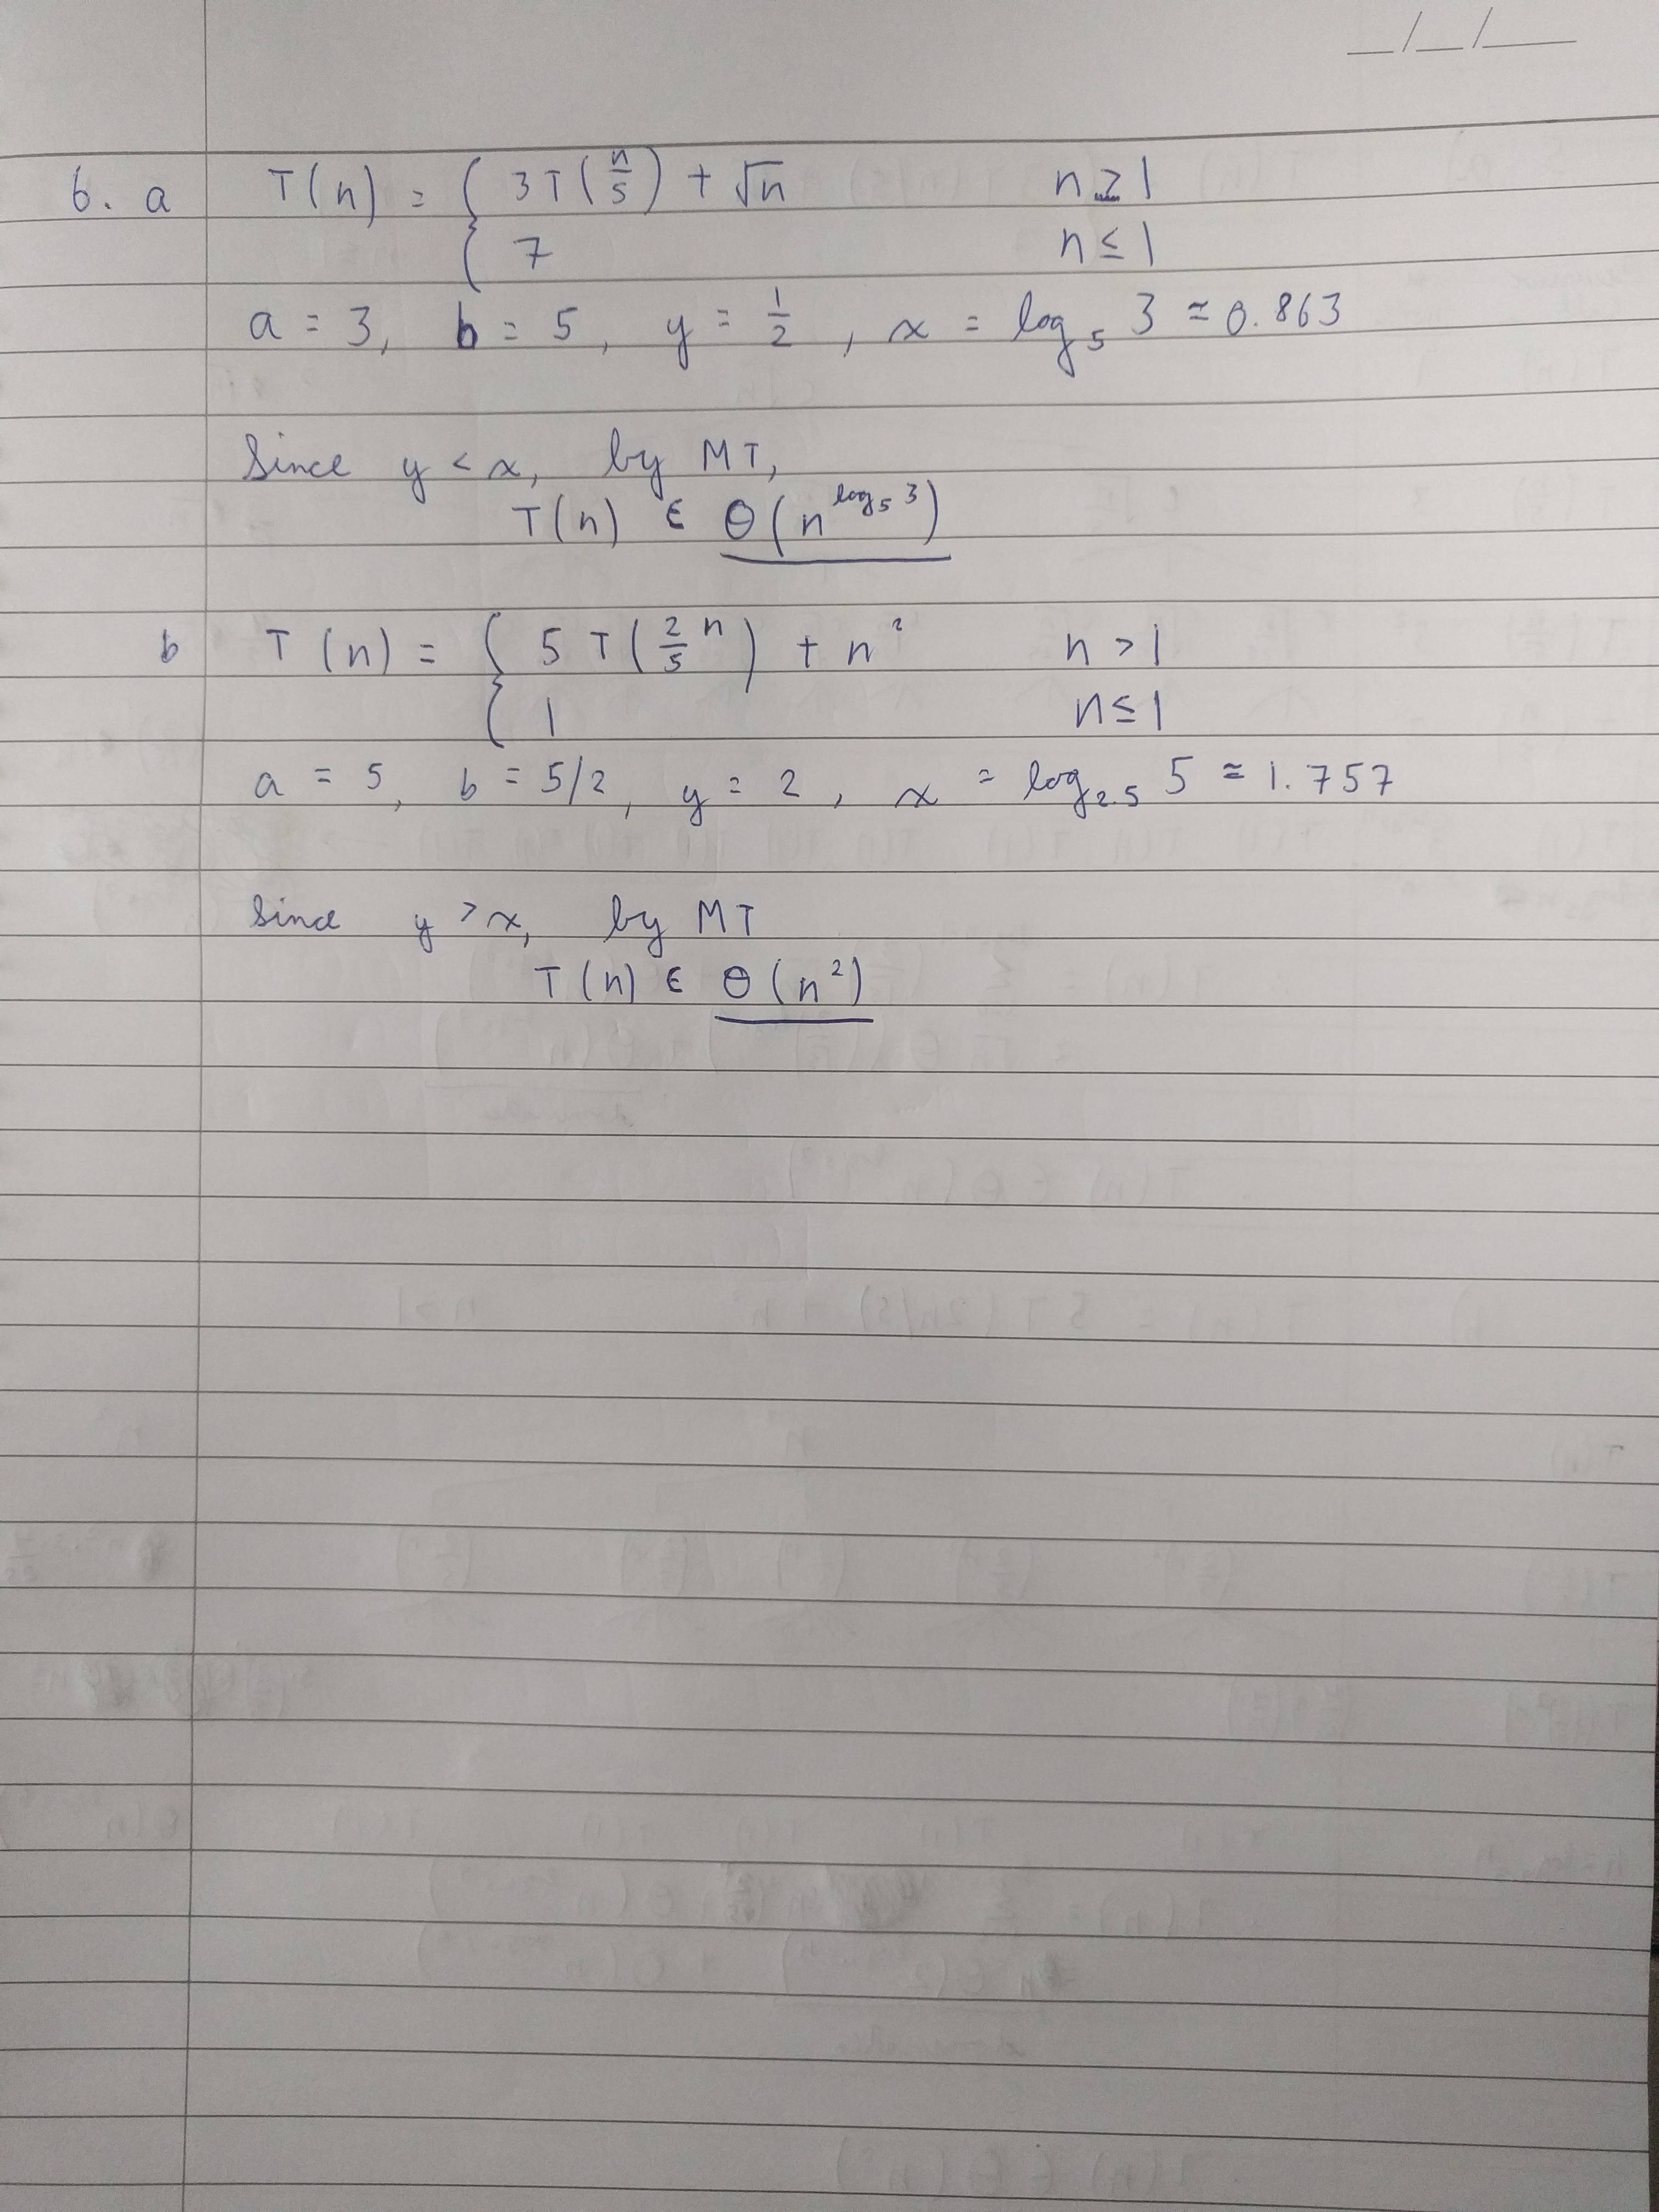 __/__/____
6. a T(n) = { 3T(n/5) + √n n ≥ 1
7 n ≤ 1
a = 3, b = 5, y = 1/2, x = log₅ 3 ≈ 0.863
Since y < x, by MT,
T(n) ∈ Θ(n^(log₅ 3))
b T(n) = { 5T(2/5 n) + n² n > 1
1 n ≤ 1
a = 5, b = 5/2, y = 2, x = log₂.₅ 5 ≈ 1.757
Since y > x, by MT
T(n) ∈ Θ(n²)